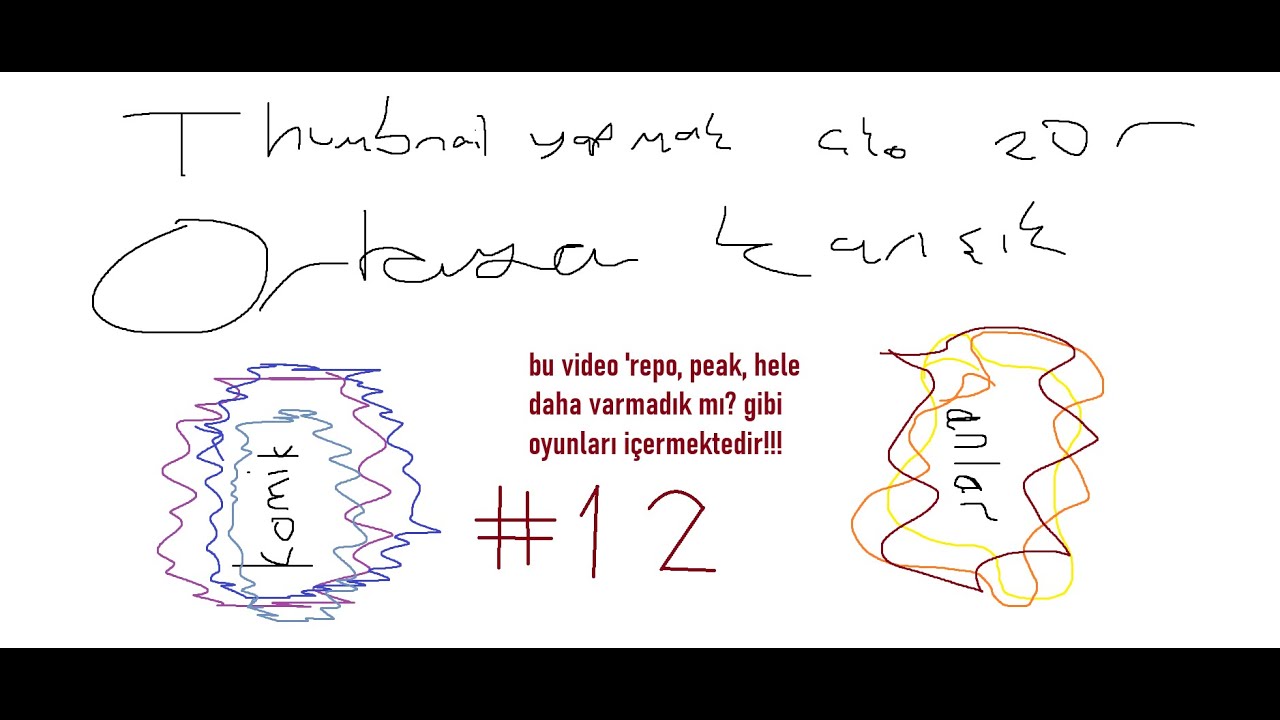 Thumbnail yapmak ço zor
Ortaya karışık
komik
bu video 'repo, peak, hele
daha varmadık mı? gibi
oyunları içermektedir!!!
#12
anlar